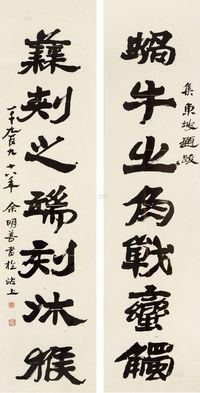 集東坡題跋
蝸牛之角戰蠻觸
蕀刺之端刻沐猴
一千九百九十八年余明善書於沽上